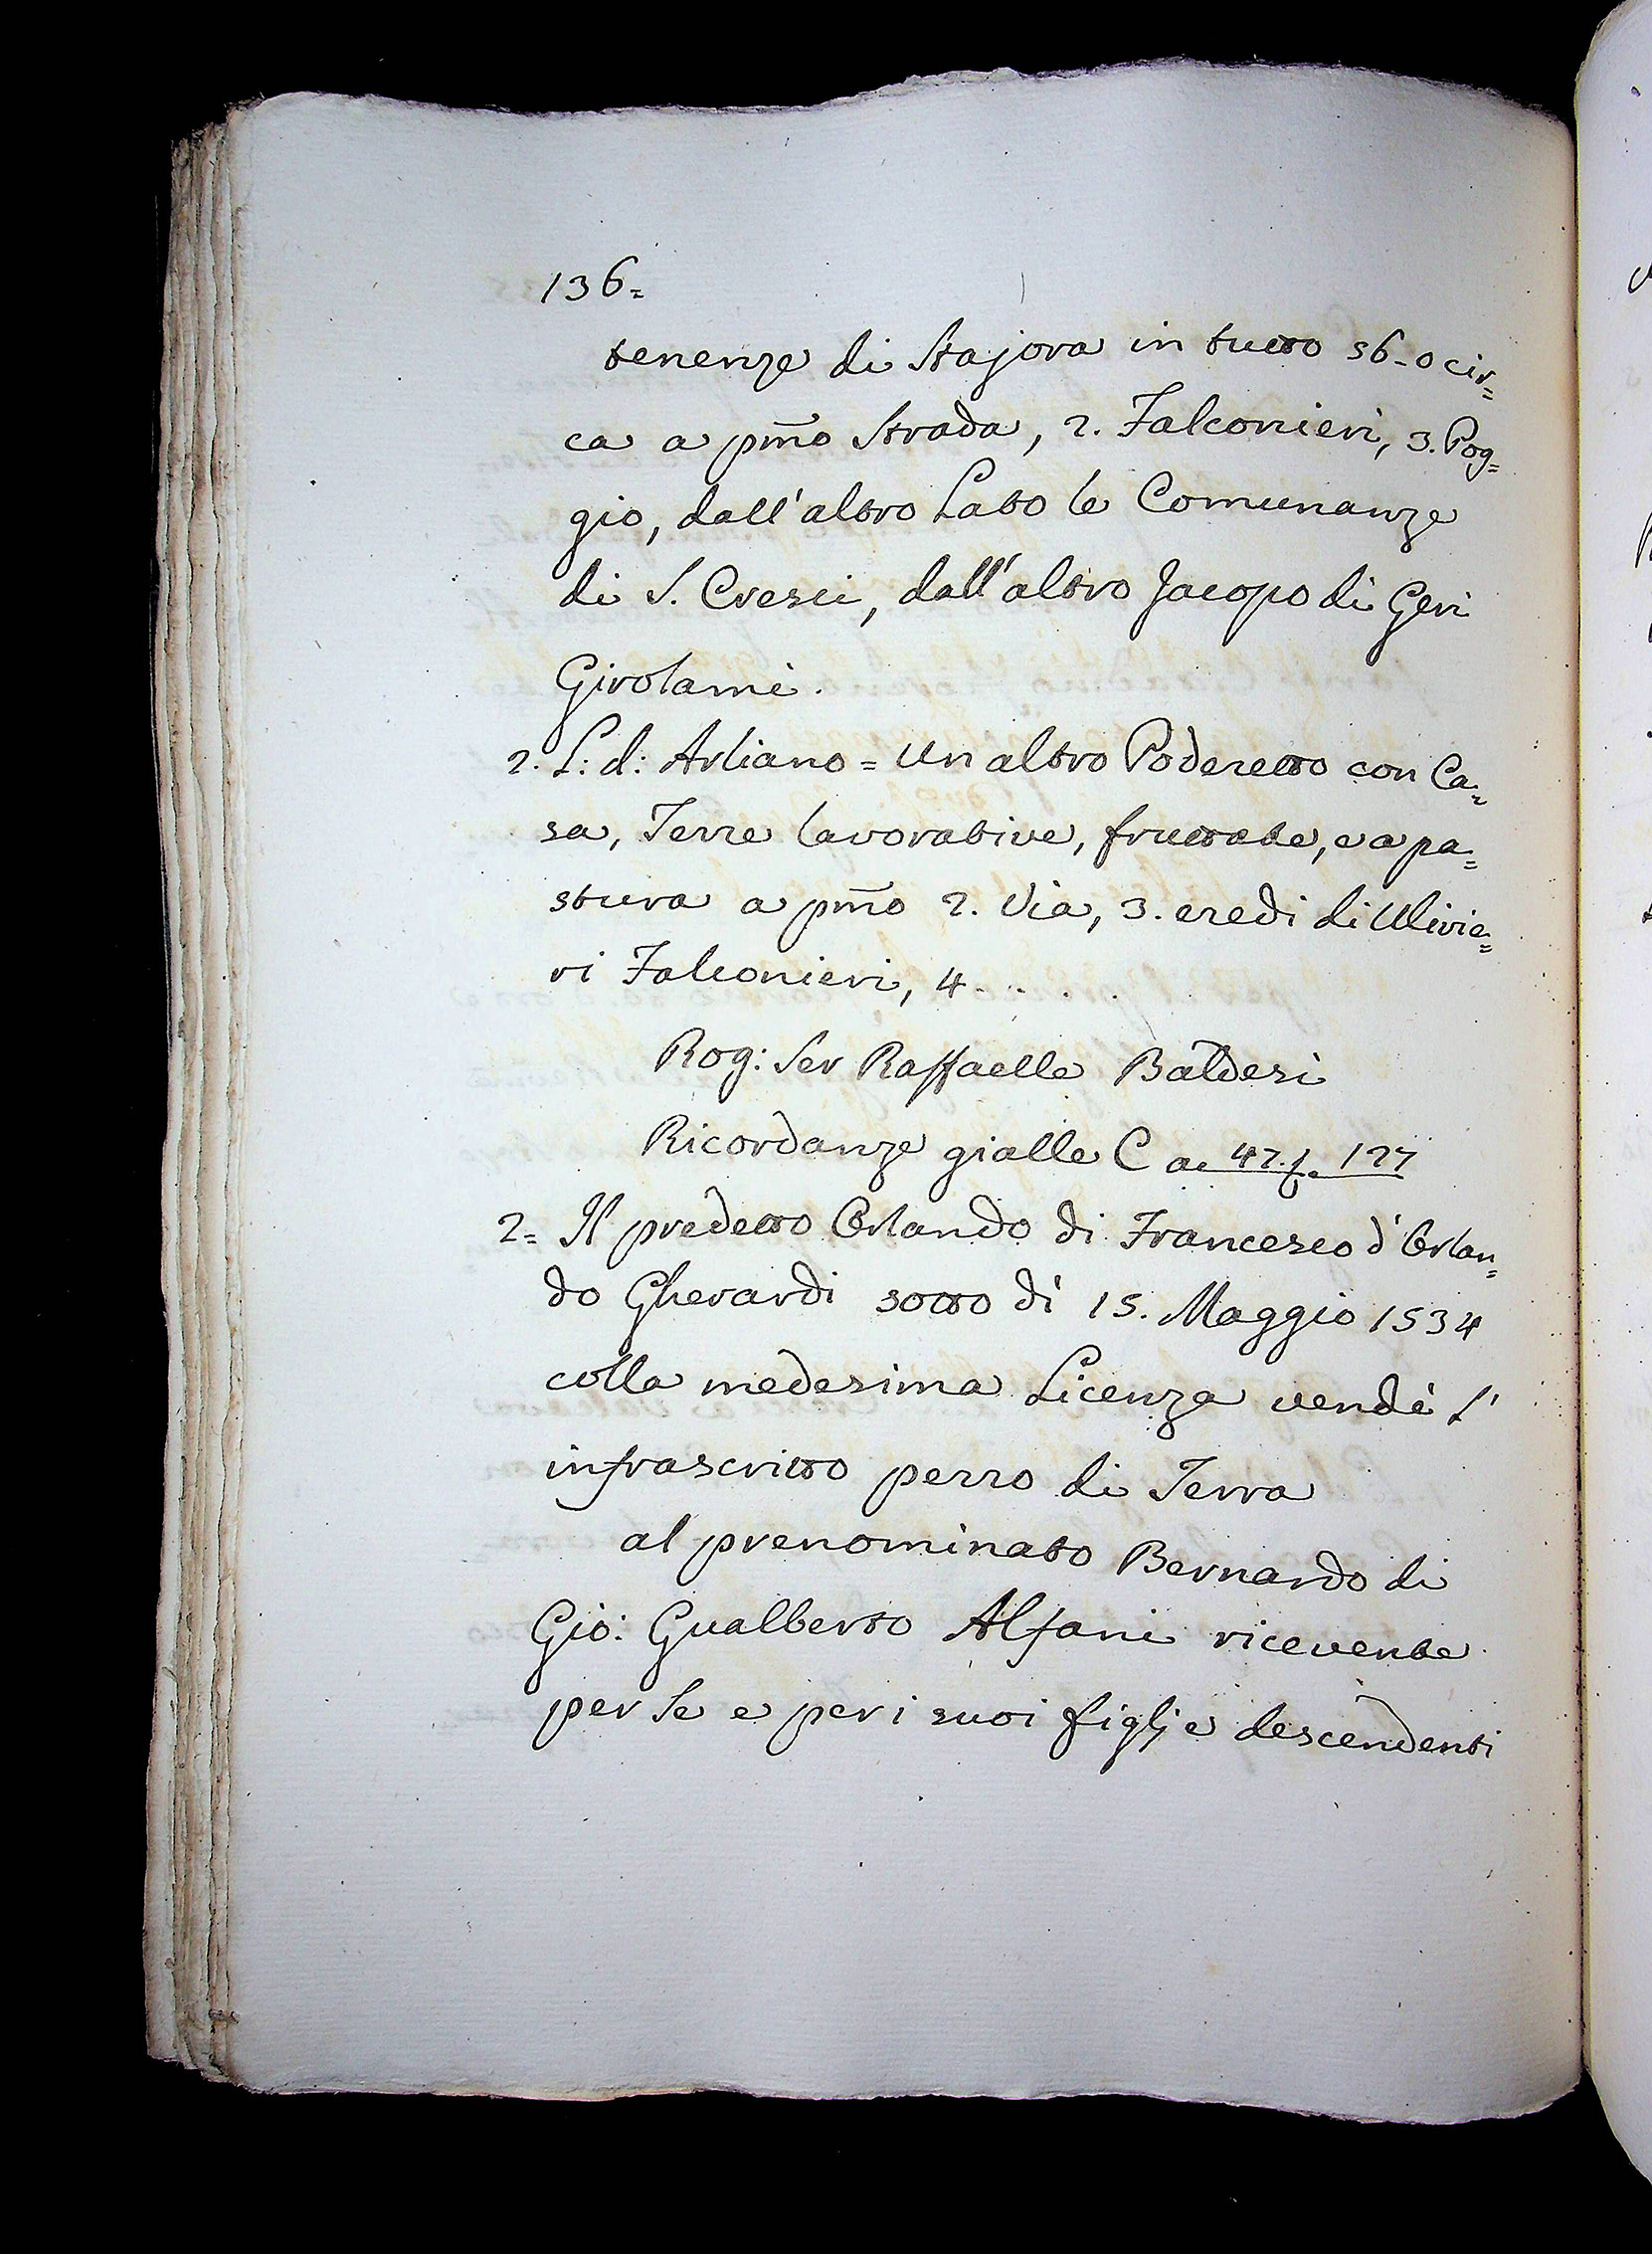 136=
tenenze di Stajora in tutto 56-0 cir=
ca a pm̃o Strada, 2. Falconieri, 3. Pog=
gio, dall'altro Lato le Comunanze
di S. Cresci, dall'altro Jacopo di Geri
Girolami.
2. L: d: Arliano = Un altro Poderetto con Ca=
sa, Terre lavorative, fruttate, e a pa=
stura a pm̃o 2. Via, 3. eredi di Ulivie=
ri Falconieri, 4. . . . .
Rog: Ser Raffaelle Baldesi
Ricordanze gialle C a. 47. f. 127
2= Il predetto Orlando di Francesco d'Orlan=
do Gherardi sotto dì 15. Maggio 1534
colla medesima Licenza vendè l'
infrascritto pezzo di Terra
al prenominato Bernardo di
Gio: Gualberto Alfani ricevente
per Se e per i suoi figlj e descendenti